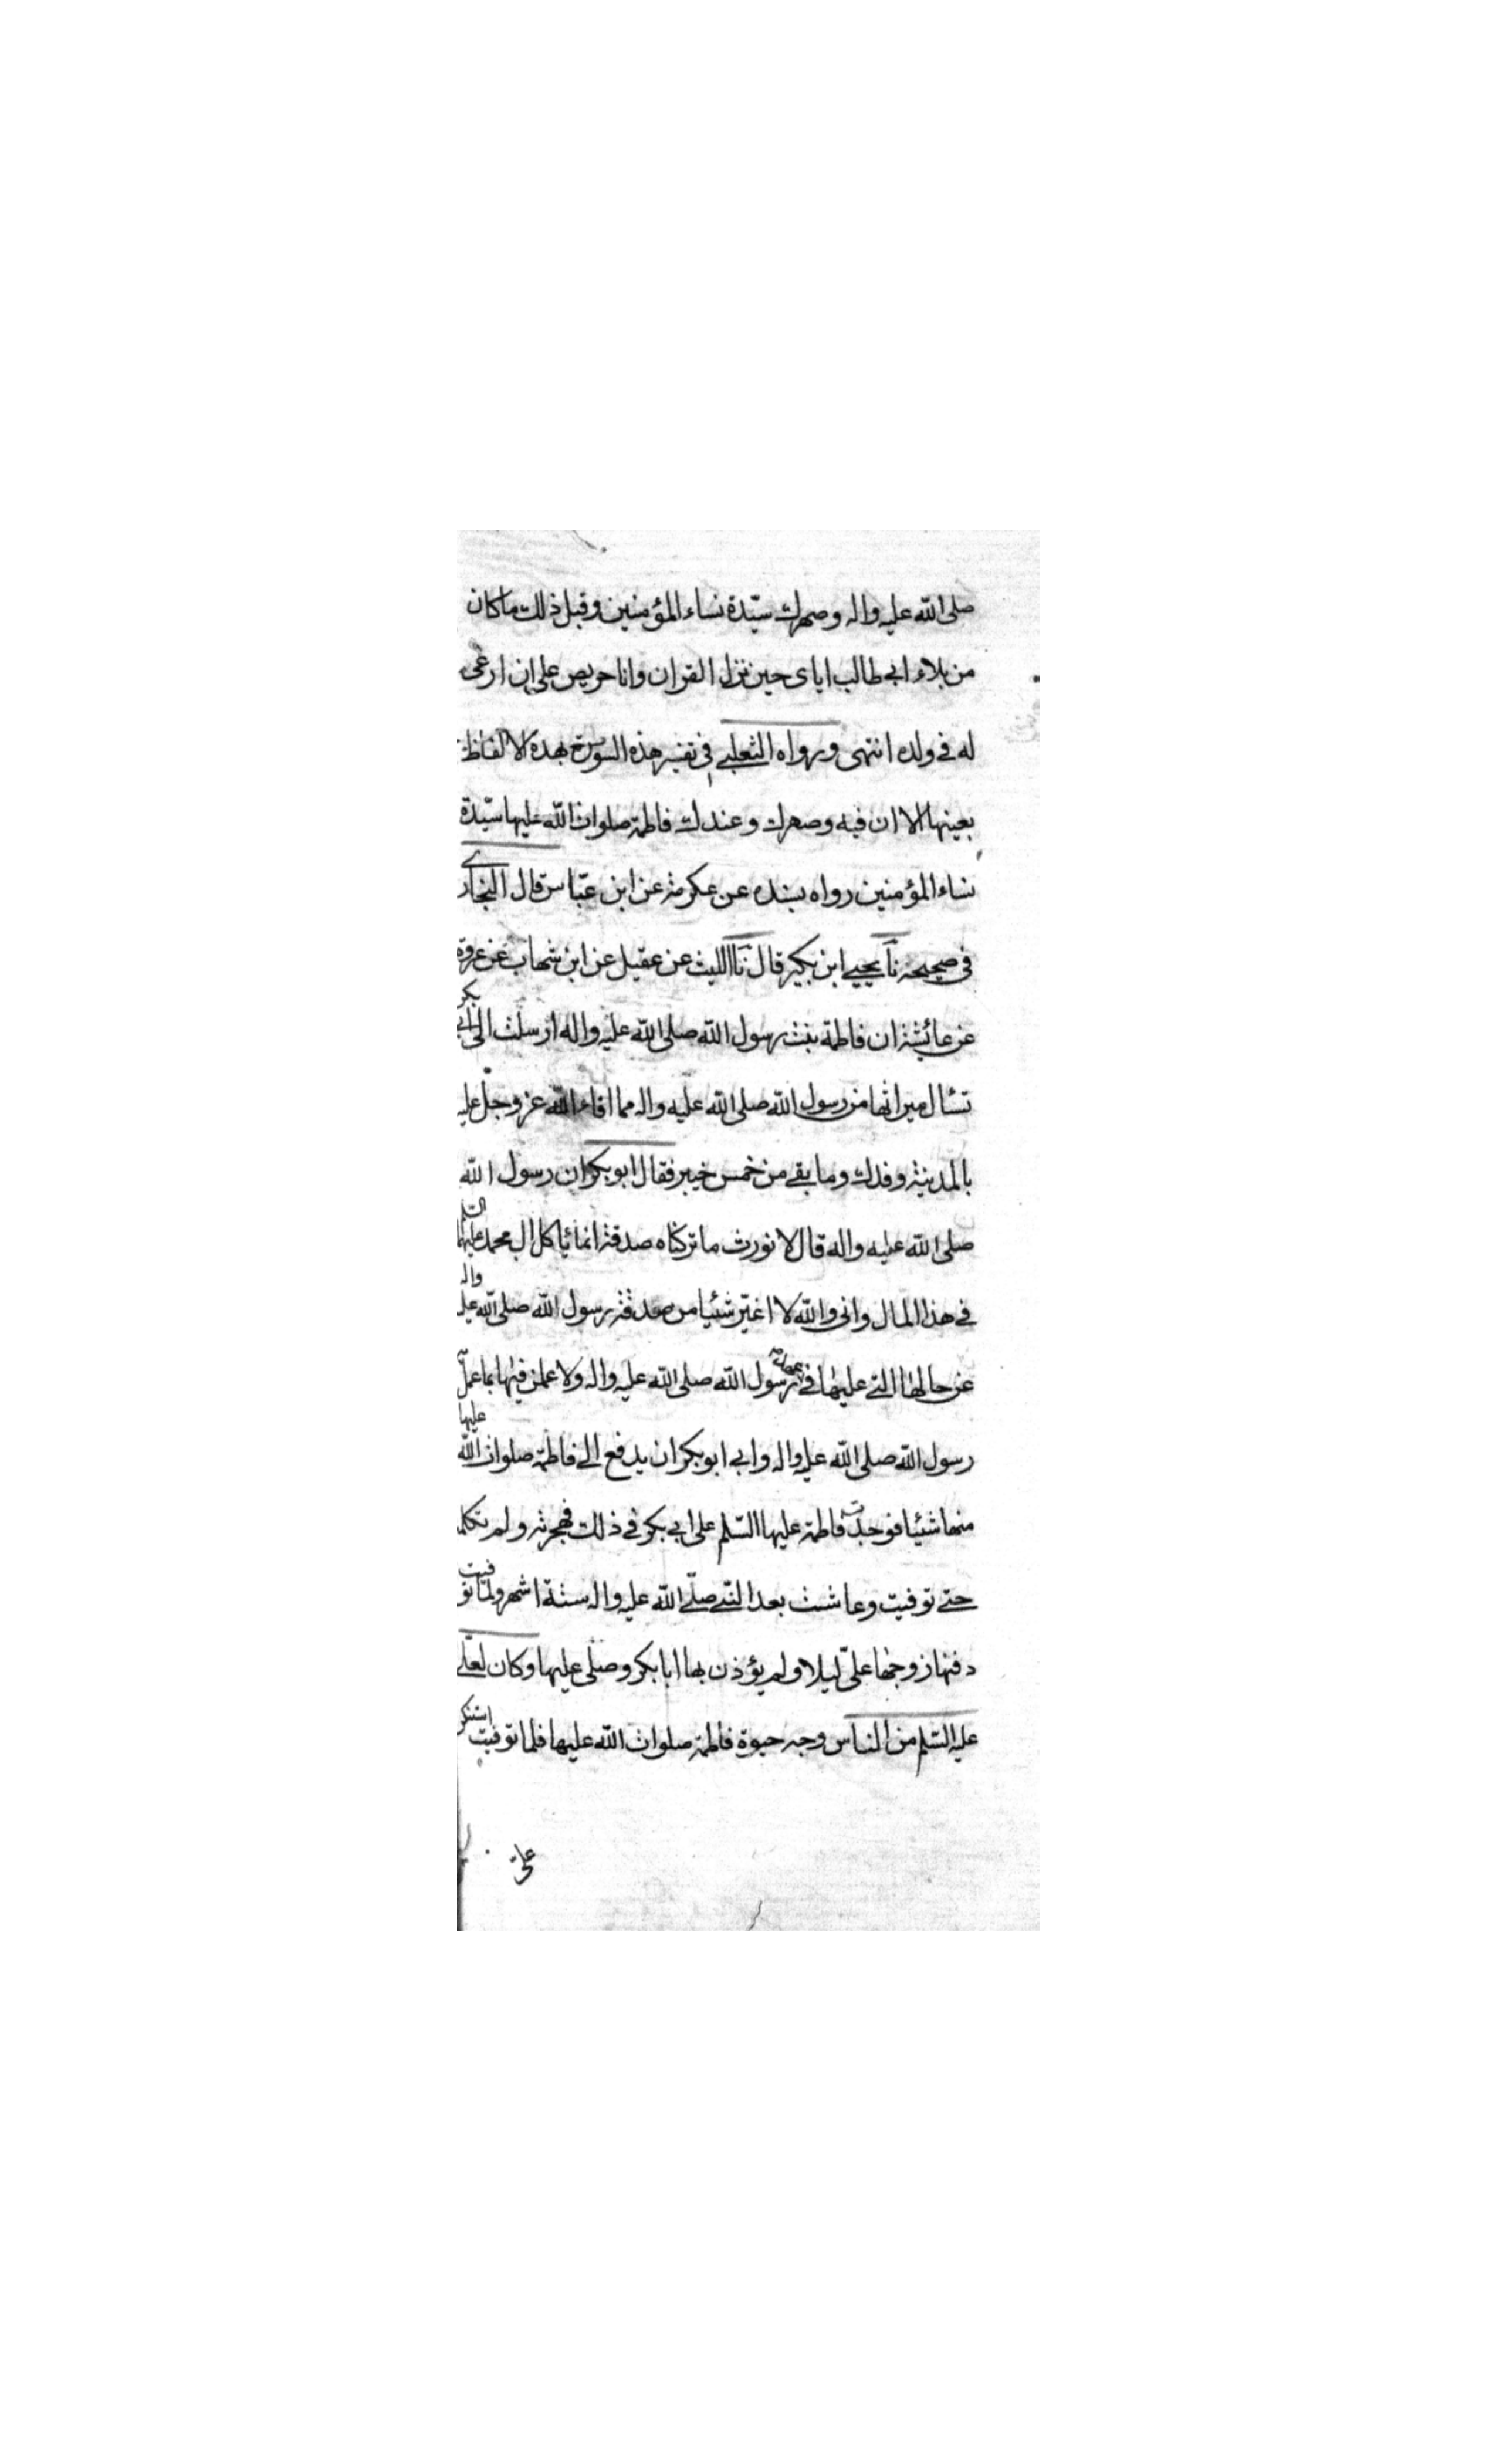 صلى الله عليه واله وصهرك سيّدة نساء المؤمنين وقبل ذلك ما كان
من بلاء ابي طالب اياى حين نزل القران وانا حريص على ان ارعى
له في ولده انتهى ورواه الثعلبي في تفسير هذه السورة بهذه الالفاظ
بعينها الا ان فيه وصهرك وعندك فاطمة صلوات الله عليها سيّدة
نساء المؤمنين رواه بسنده عن عكرمة عن ابن عبّاس قال البخارى
في صحيحه نا يحيى ابن بكير قال نا الليث عن عقيل عن ابن شهاب عن عروة
عن عائشة ان فاطمة بنت رسول الله صلى الله عليه واله ارسلت الى ابى بكر
تسأل ميراثها من رسول الله صلى الله عليه واله مما افاء الله عز وجلّ عليه
بالمدينة وفدك وما بقي من خمس خيبر فقال ابو بكر ان رسول الله
صلى الله عليه واله قال لا نورث ما تركناه صدقة انما يأكل ال محمد عليهم السلم
في هذا المال وانى والله لا اغيّر شيئا من صدقة رسول الله صلى الله عليه واله
عن حالها التي عليها في عهد رسول الله صلى الله عليه واله ولا عملن فيها بما عمل
رسول الله صلى الله عليه واله وابى ابو بكر ان يدفع الى فاطمة صلوات الله عليها
منها شيئا فوجدت فاطمة عليها السّلم على ابي بكر في ذلك فهجرته ولم تكلمه
حتى توفيت وعاشت بعد النبي صلّى الله عليه واله ستة اشهر ولمّا توفيت
دفنها زوجها علىّ ليلا ولم يؤذن بها ابا بكر وصلى عليها وكان لعلّي
عليه السّلم من الناس وجه حيوة فاطمة صلوات الله عليها فلما توفيت استنكر
علىّ